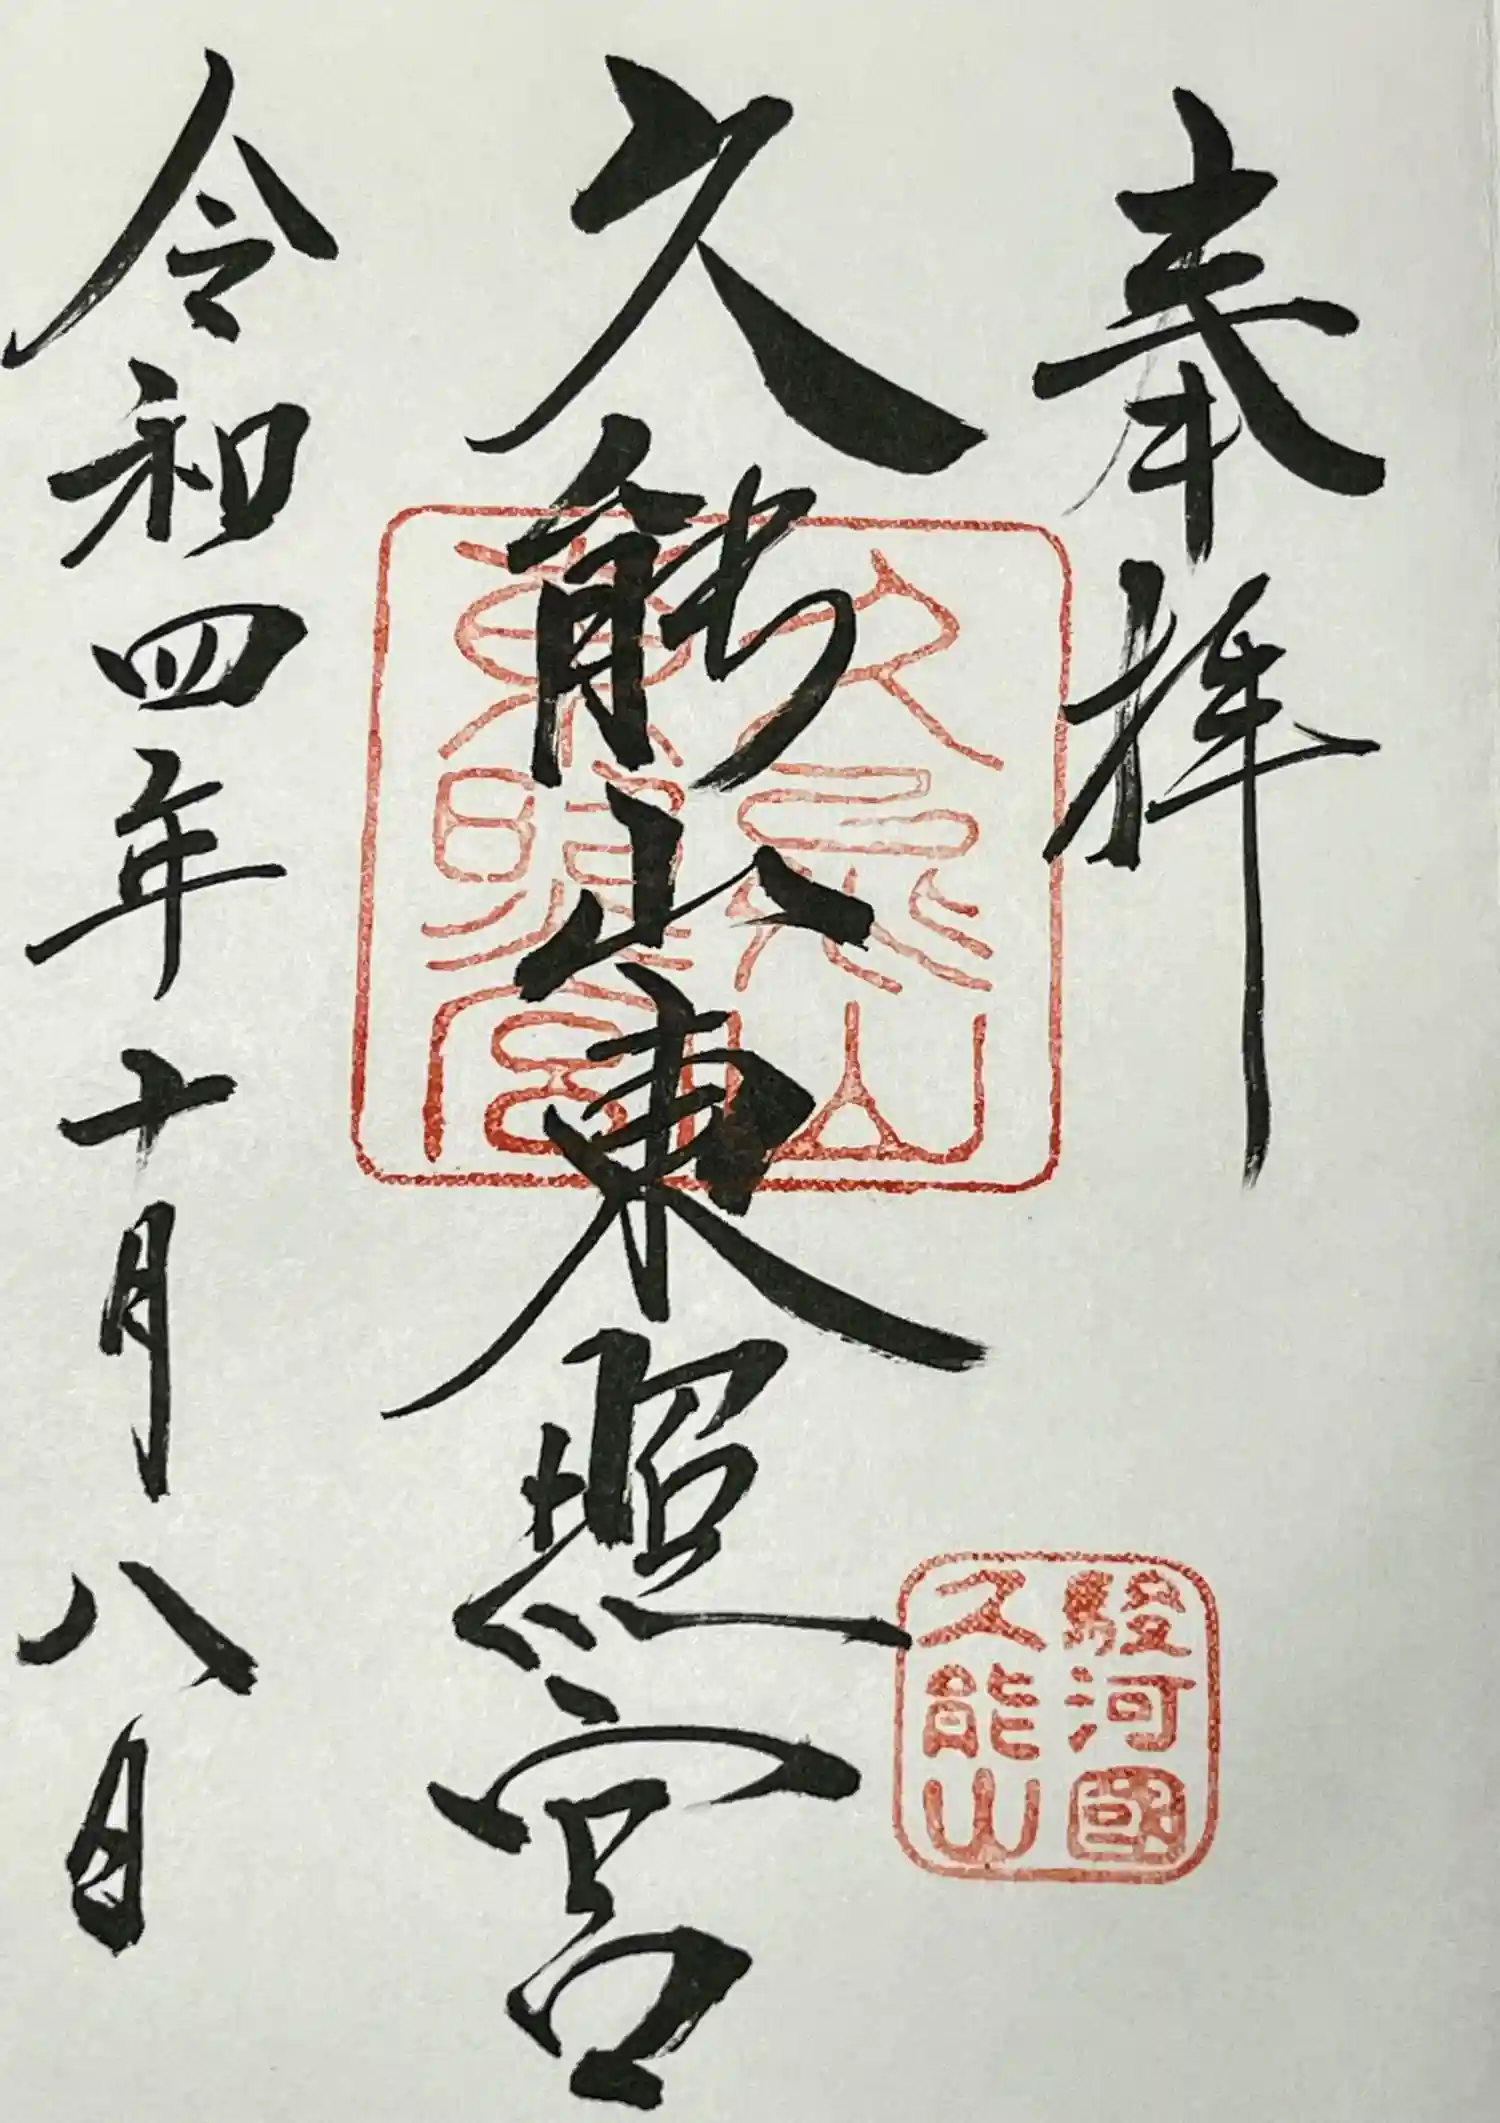 奉拝
駿河國
久能山
久能山東照宮
久能山
東照宮
令和四年十月八日